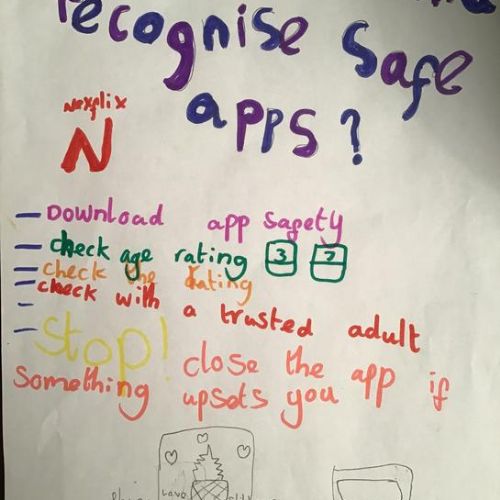 recognise safe
apps?
Nexflix
N
Download app safety
check age rating 3 7
check the rating
check with a trusted adult
Stop! close the app if
Something upsets you
Love